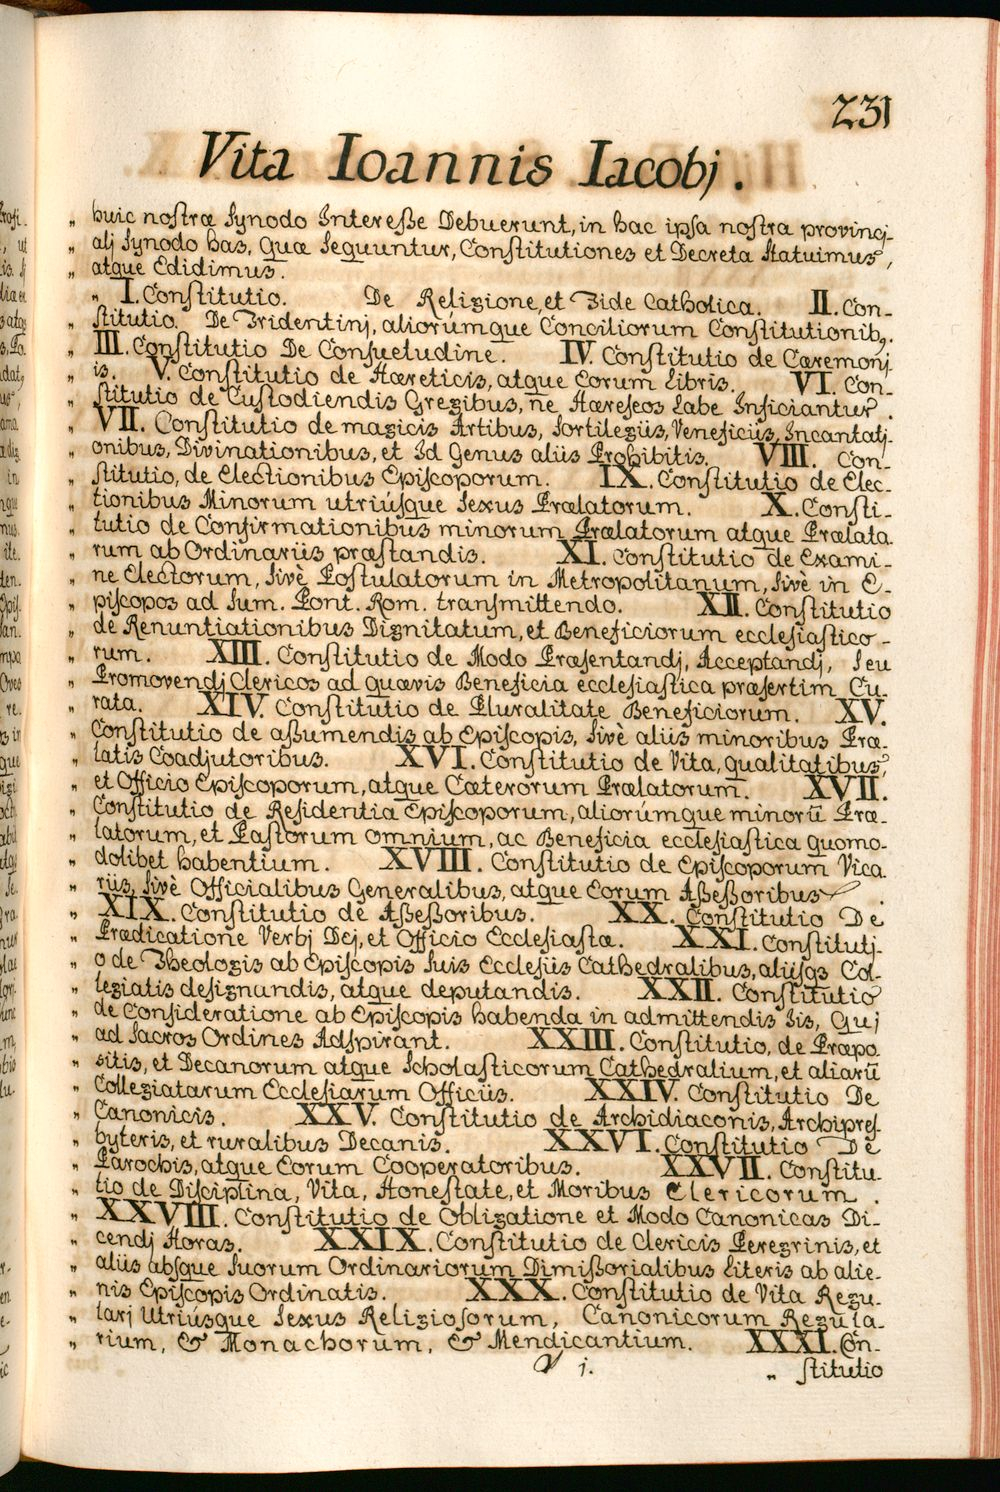 231
Vita Ioannis Iacobj.
„ huic nostræ Synodo Interesse Debuerunt, in hac ipsa nostra provincj-
„ alj Synodo has, Quæ Sequuntur, Constitutiones et Decreta Statuimus,
„ atque Edidimus.
„ I. Constitutio. De Religione, et Fide Catholica. II. Con-
„ stitutio. De Tridentinj, aliorúmque Conciliorum Constitutionib9.
„ III. Constitutio De Consuetudine. IV. Constitutio de Cæremonj
„ is. V. Constitutio de Hæreticis, atque Eorum Libris. VI. Con-
„ stitutio de Custodiendis Gregibus, ne Hæreseos Labe Inficiantur.
„ VII. Constitutio de magicis Artibus, Sortilegiis, Veneficiis, Incantatj-
„ onibus, Divinationibus, et Id Genus aliis Prohibitis. VIII. Con-
„ stitutio, de Electionibus Episcoporum. IX. Constitutio de Elec-
„ tionibus Minorum utriúsque Sexus Prælatorum. X. Consti-
„ tutio de Confirmationibus minorum Prælatorum atque Prælata
„ rum ab Ordinariis præstandis. XI. Constitutio de Exami-
„ ne Electorum, Sivè Postulatorum in Metropolitanum, Sivè in E-
„ piscopos ad Sum. Pont. Rom. transmittendo. XII. Constitutio
„ de Renuntiationibus Dignitatum, et Beneficiorum ecclesiastico-
„ rum. XIII. Constitutio de Modo Præsentandj, Acceptandj, Seu
„ Promovendj Clericos ad quævis Beneficia ecclesiastica præsertim Cu-
„ rata. XIV. Constitutio de Pluralitate Beneficiorum. XV.
„ Constitutio de assumendis ab Episcopis, Sivè aliis minoribus Præ-
„ latis Coadjutoribus. XVI. Constitutio de Vita, qualitatibus,
„ et Officio Episcoporum, atque Cæterorum Prælatorum. XVII.
„ Constitutio de Residentia Episcoporum, aliorúmque minorū Præ-
„ latorum, et Pastorum omnium, ac Beneficia ecclesiastica quomo-
„ dolibet habentium. XVIII. Constitutio de Episcoporum Vica
„ riis, Sivè Officialibus Generalibus, atque Eorum Assessoribus.
„ XIX. Constitutio de Assessoribus. XX. Constitutio De
„ Prædicatione Verbj Dej, et Officio Ecclesiastæ. XXI. Constitutj-
„ o de Theologis ab Episcopis Suis Ecclesiis Cathedralibus, aliisqs Col-
„ legiatis designandis, atque deputandis. XXII. Constitutio
„ de Consideratione ab Episcopis habenda in admittendis Iis, Quj
„ ad Sacros Ordines Adspirant. XXIII. Constitutio, de Præpo
„ sitis, et Decanorum atque Scholasticorum Cathedralium, et aliarū
„ Collegiatarum Ecclesiarum Officiis. XXIV. Constitutio De
„ Canonicis. XXV. Constitutio de Archidiaconis, Archipres-
„ byteris, et ruralibus Decanis. XXVI. Constitutio De
„ Parochis, atque Eorum Cooperatoribus. XXVII. Constitu-
„ tio de Disciplina, Vita, Honestate, et Moribus Clericorum.
„ XXVIII. Constitutio de Obligatione et Modo Canonicas Di-
„ cendj Horas. XXIX. Constitutio de Clericis Peregrinis, et
„ aliis absque Suorum Ordinariorum Dimissorialibus Literis ab alie-
„ nis Episcopis Ordinatis. XXX. Constitutio de Vita Regu-
„ larj Utriúsque Sexus Religiosorum, Canonicorum Regula-
„ rium, & Monachorum, & Mendicantium. XXXI. Con-
V j. „ stitutio